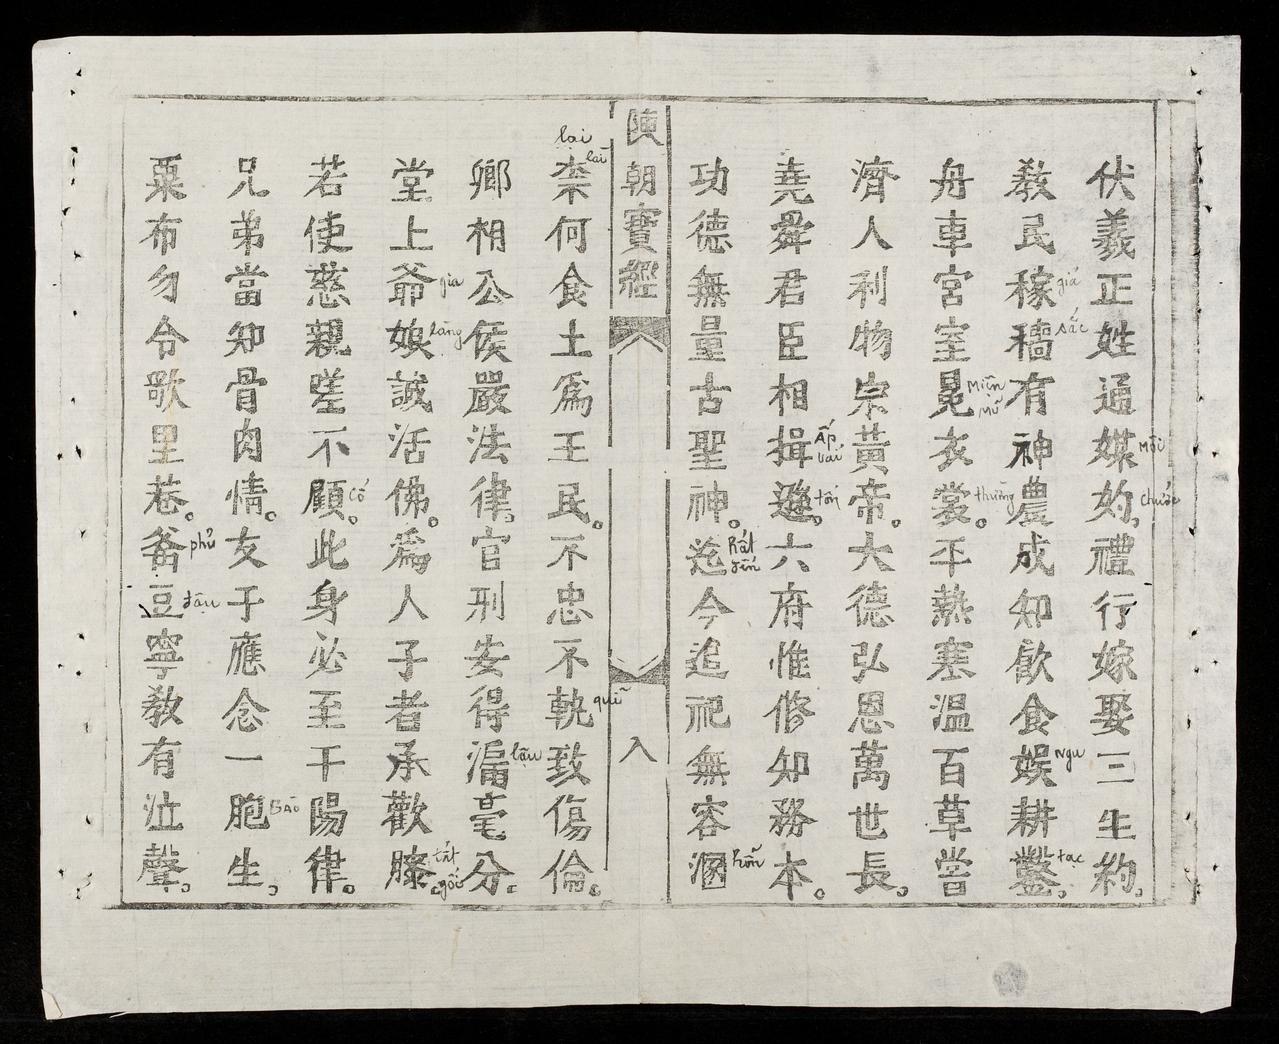 伏羲正姓通媒妁。禮行嫁娶三生約。
教民稼穡有神農成知飲食娛耕鑿。
舟車宮室冕衣裳。平熱寒溫百草嘗
濟人利物宗黃帝。大德弘恩萬世長。
堯舜君臣相揖遜。六府惟修知務本。
功德無量古聖神。迄今追祀無容溷
陳朝寶經
八
柰何食土爲王民。不忠不軌致傷倫。
鄉相公侯嚴法律。官刑安得漏毫分。
堂上爺娘誠活佛。爲人子者承歡膝。
若使慈親嗟不顧。此身必至干陽律。
兄弟當知骨肉情。女子應念一胞生。
粟布勿令歌里巷。釜豆寧教有泣聲。
Mối
chước
giá
sắc
ngu
tạc
miện
mũ
thường
Ấp
vái
tốn
Rất
gần
hỗn
lại
lai
quĩ
lậu
gia
làng
tất
gối
cố
Bào
phủ
đậu